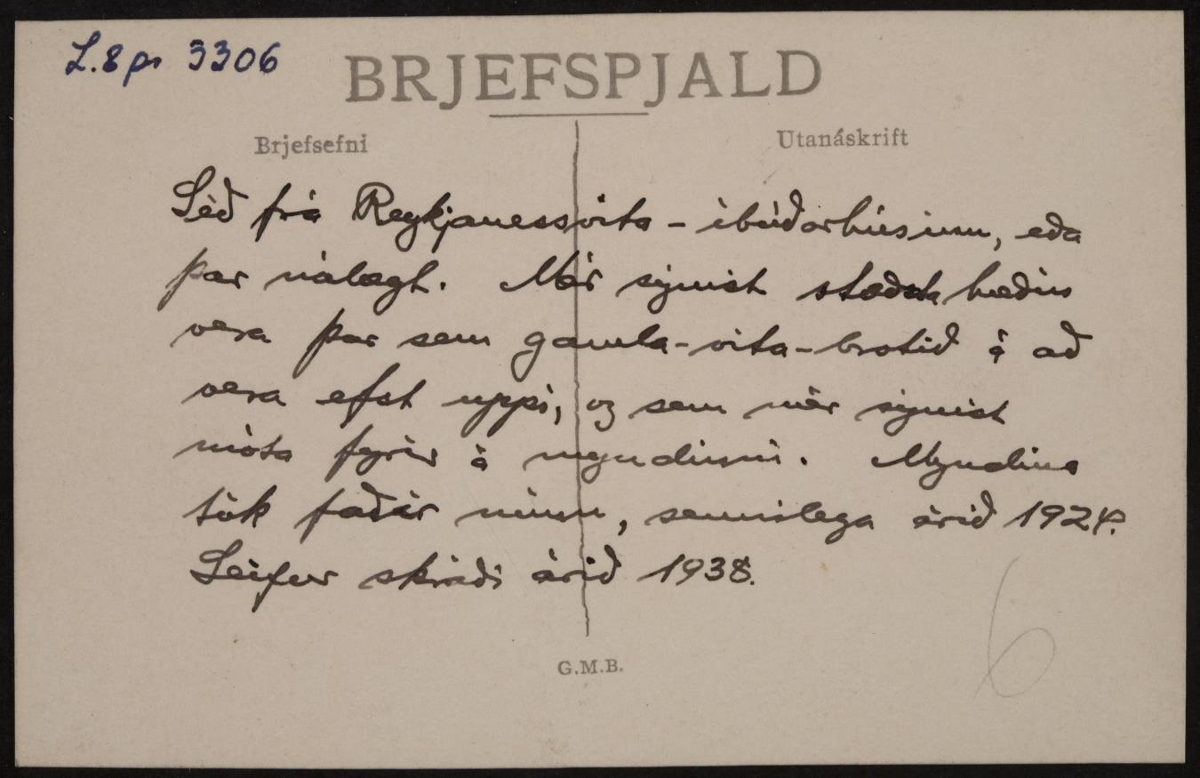 L.8 pr 3306
BRJEFSPJALD
Brjefsefni
Utanáskrift
Séð frá Reykjanessvita - íbúðarhúsinu, eða
þar nálægt. Mér sýnist hæðin
vera þar sem gamla-vita-brotið á að
vera efst uppi, og sem mér sýnist
móta fyrir á myndinni. Myndina
tók faðir minn, sennilega árið 1924.
Leifur skráði árið 1938.
G.M.B.
6